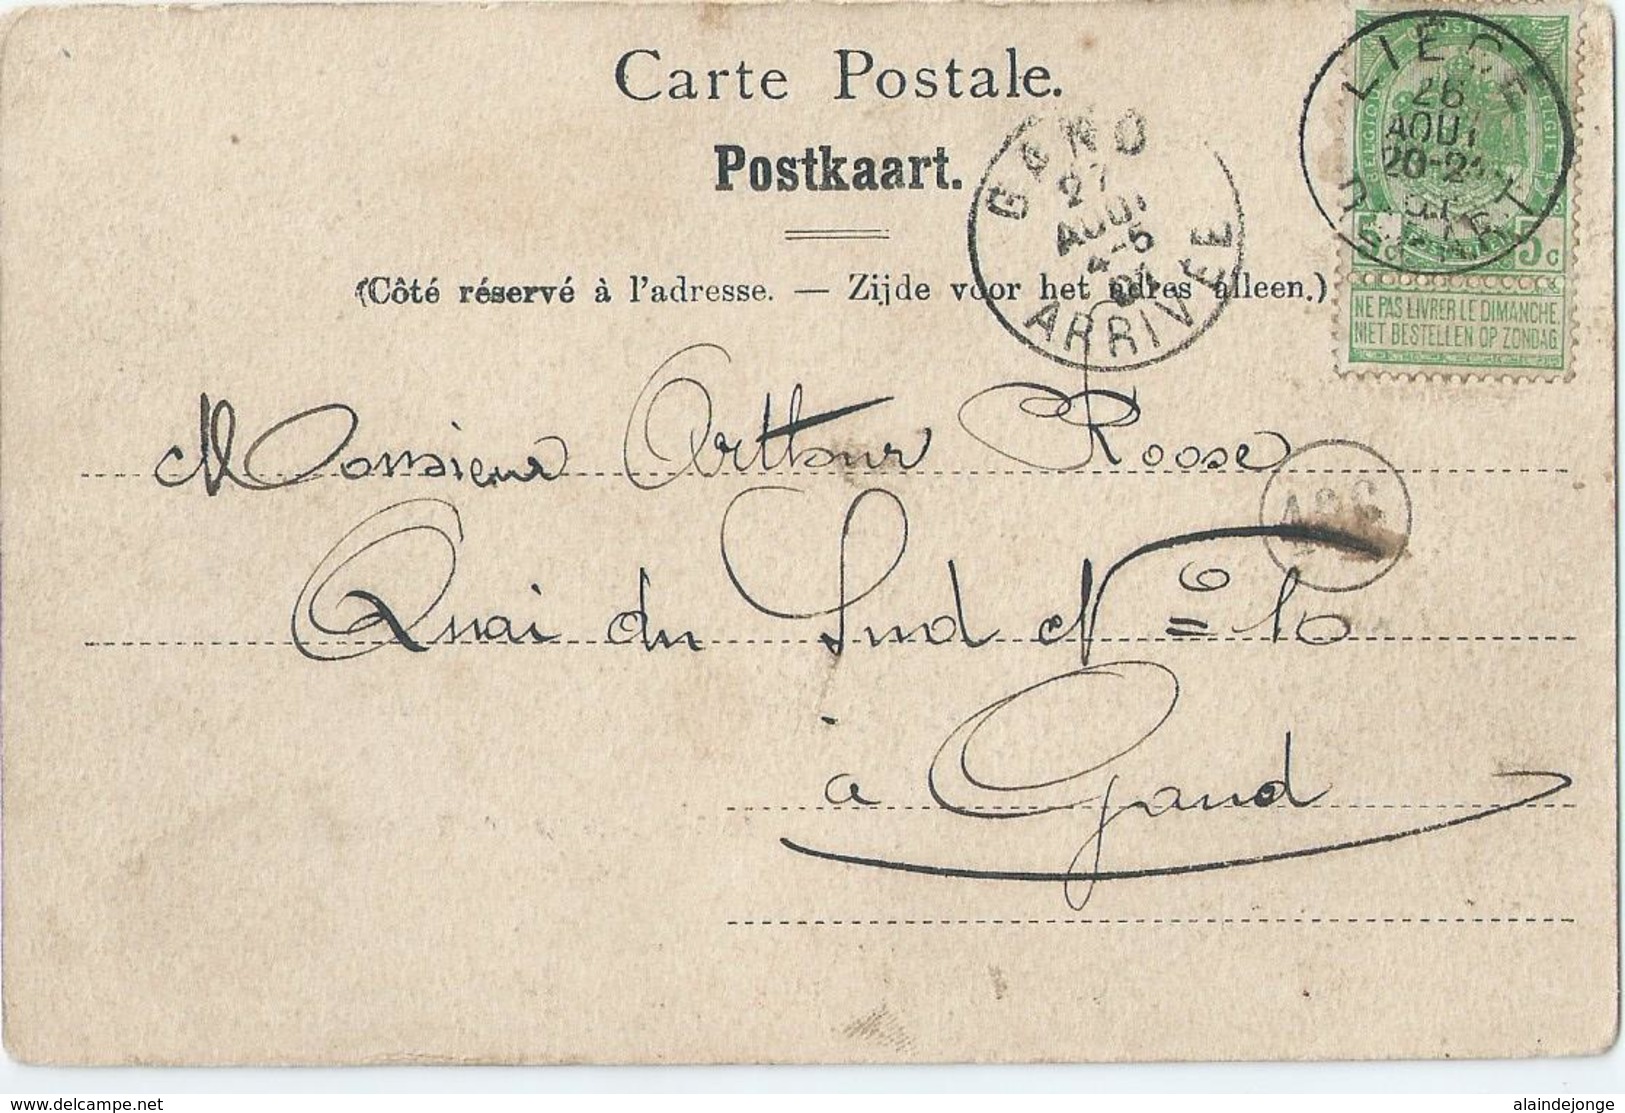 Carte Postale.
Postkaart.
(Côté réservé à l'adresse. — Zijde voor het adres alleen.)
GAND
27
AOUT
4-5
ARRIVÉE
LIÉGE
26
AOUT
20-21
5c 5c
NE PAS LIVRER LE DIMANCHE
NIET BESTELLEN OP ZONDAG
Monsieur Arthur Roose
Quai du Sud No = 10
à Gand
www.delcampe.net
alaindejonge